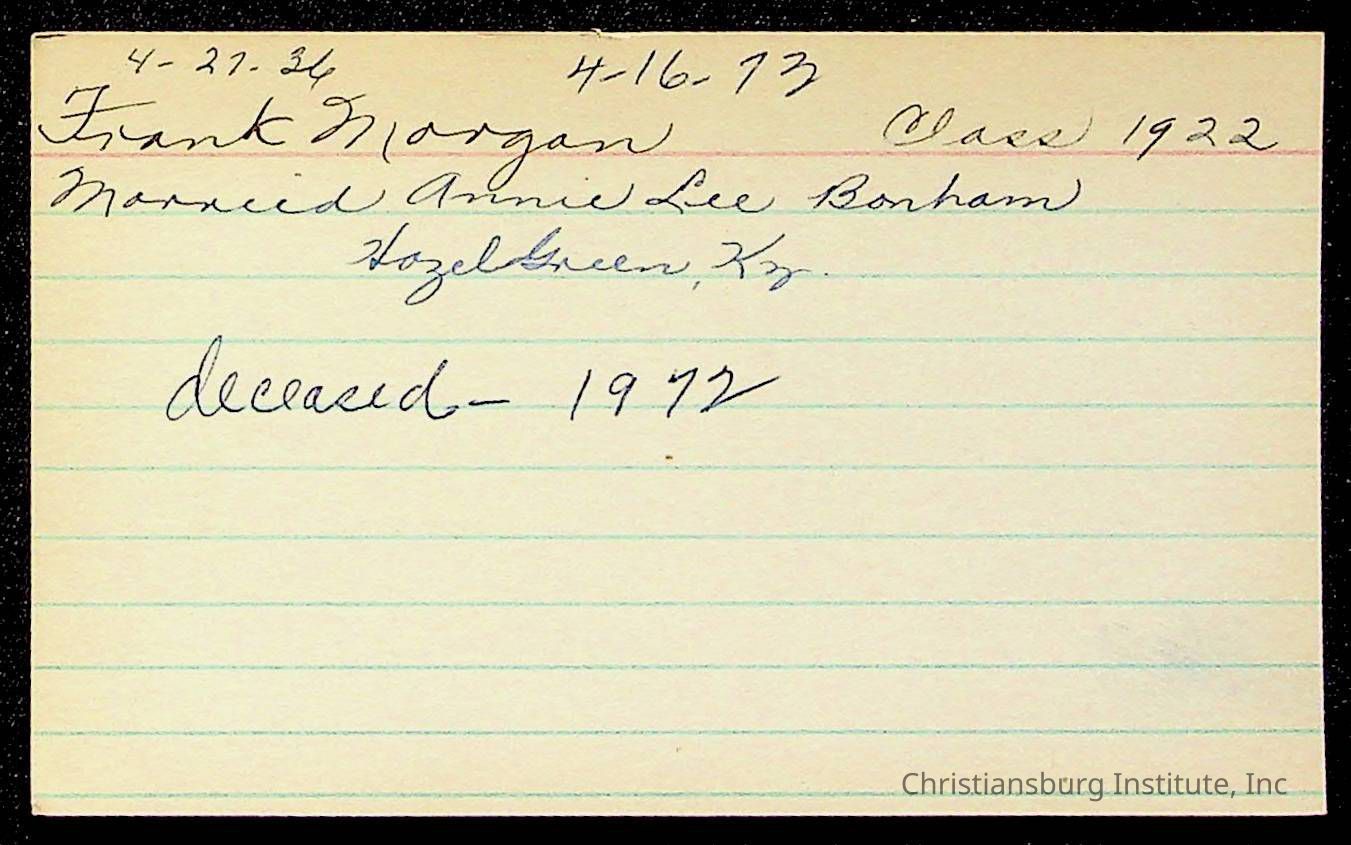 4-27-36 4-16-73
Frank Morgan Class 1922
Married Annie Lee Bonham
Hazel Green, Ky.
deceased - 1972
Christiansburg Institute, Inc